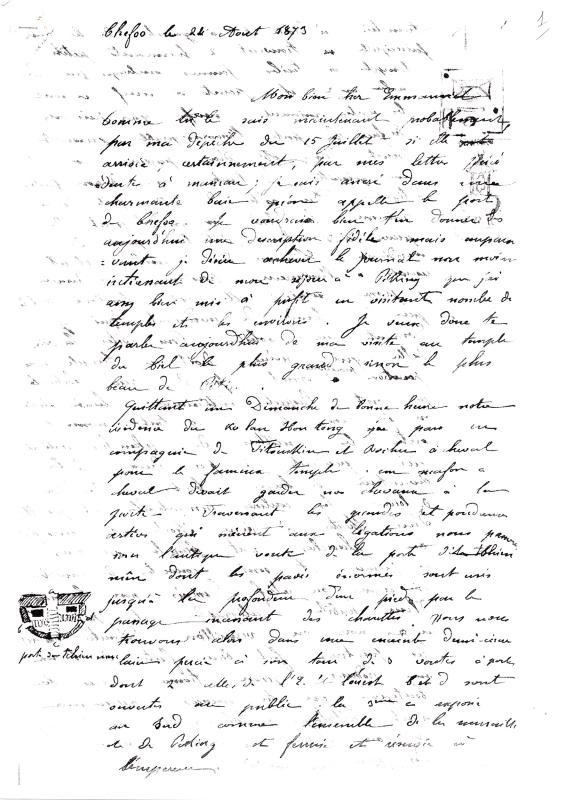 1
Chefoo le 24 Aout 1873
Mon bien cher Emmanuel
comme tu le sais maintenant probablement,
par ma depeche du 15 juillet si elle est
arrivée, certainement, par mes lettres
à maman, je suis ancré dans une
charmante baie qu'on appelle le port
de Chefoo. Je voudrais bien t'en donner dès
aujourd'hui une description fidèle mais aupara
=vant je désire achever le journal non moins
interessant de mon séjour à Peking que j'ai
assez bien mis à profit en visitant nombre de
temples et les environs. Je veux donc te
parler aujourd'hui de ma visite au temple
du Ciel le plus grand sinon le plus
beau de
Quittant un Dimanche de bonne heure notre
résidence du je pars en
compagnie de et à cheval
pour le fameux temple. un mafou à
cheval devait garder nos chevaux à la
porte. Traversant les grandes et
artères qui mènent aux légations nous passons
sous l'antique voute de la porte de
mên dont les pavés énormes sont usés
jusqu'à la profondeur d'un pied par le
passage incessant des charettes. Nous nous
trouvons alors dans une enceinte demi-circu
laire percée à son tour de 3 voutes à porte
dont 2 celles de l'E. et l'ouest B et D sont
ouvertes au public; la 3me C exposée
au Sud comme l'ensemble de la muraille
de Peking est fermée et réservée à
l'empereur
porte de